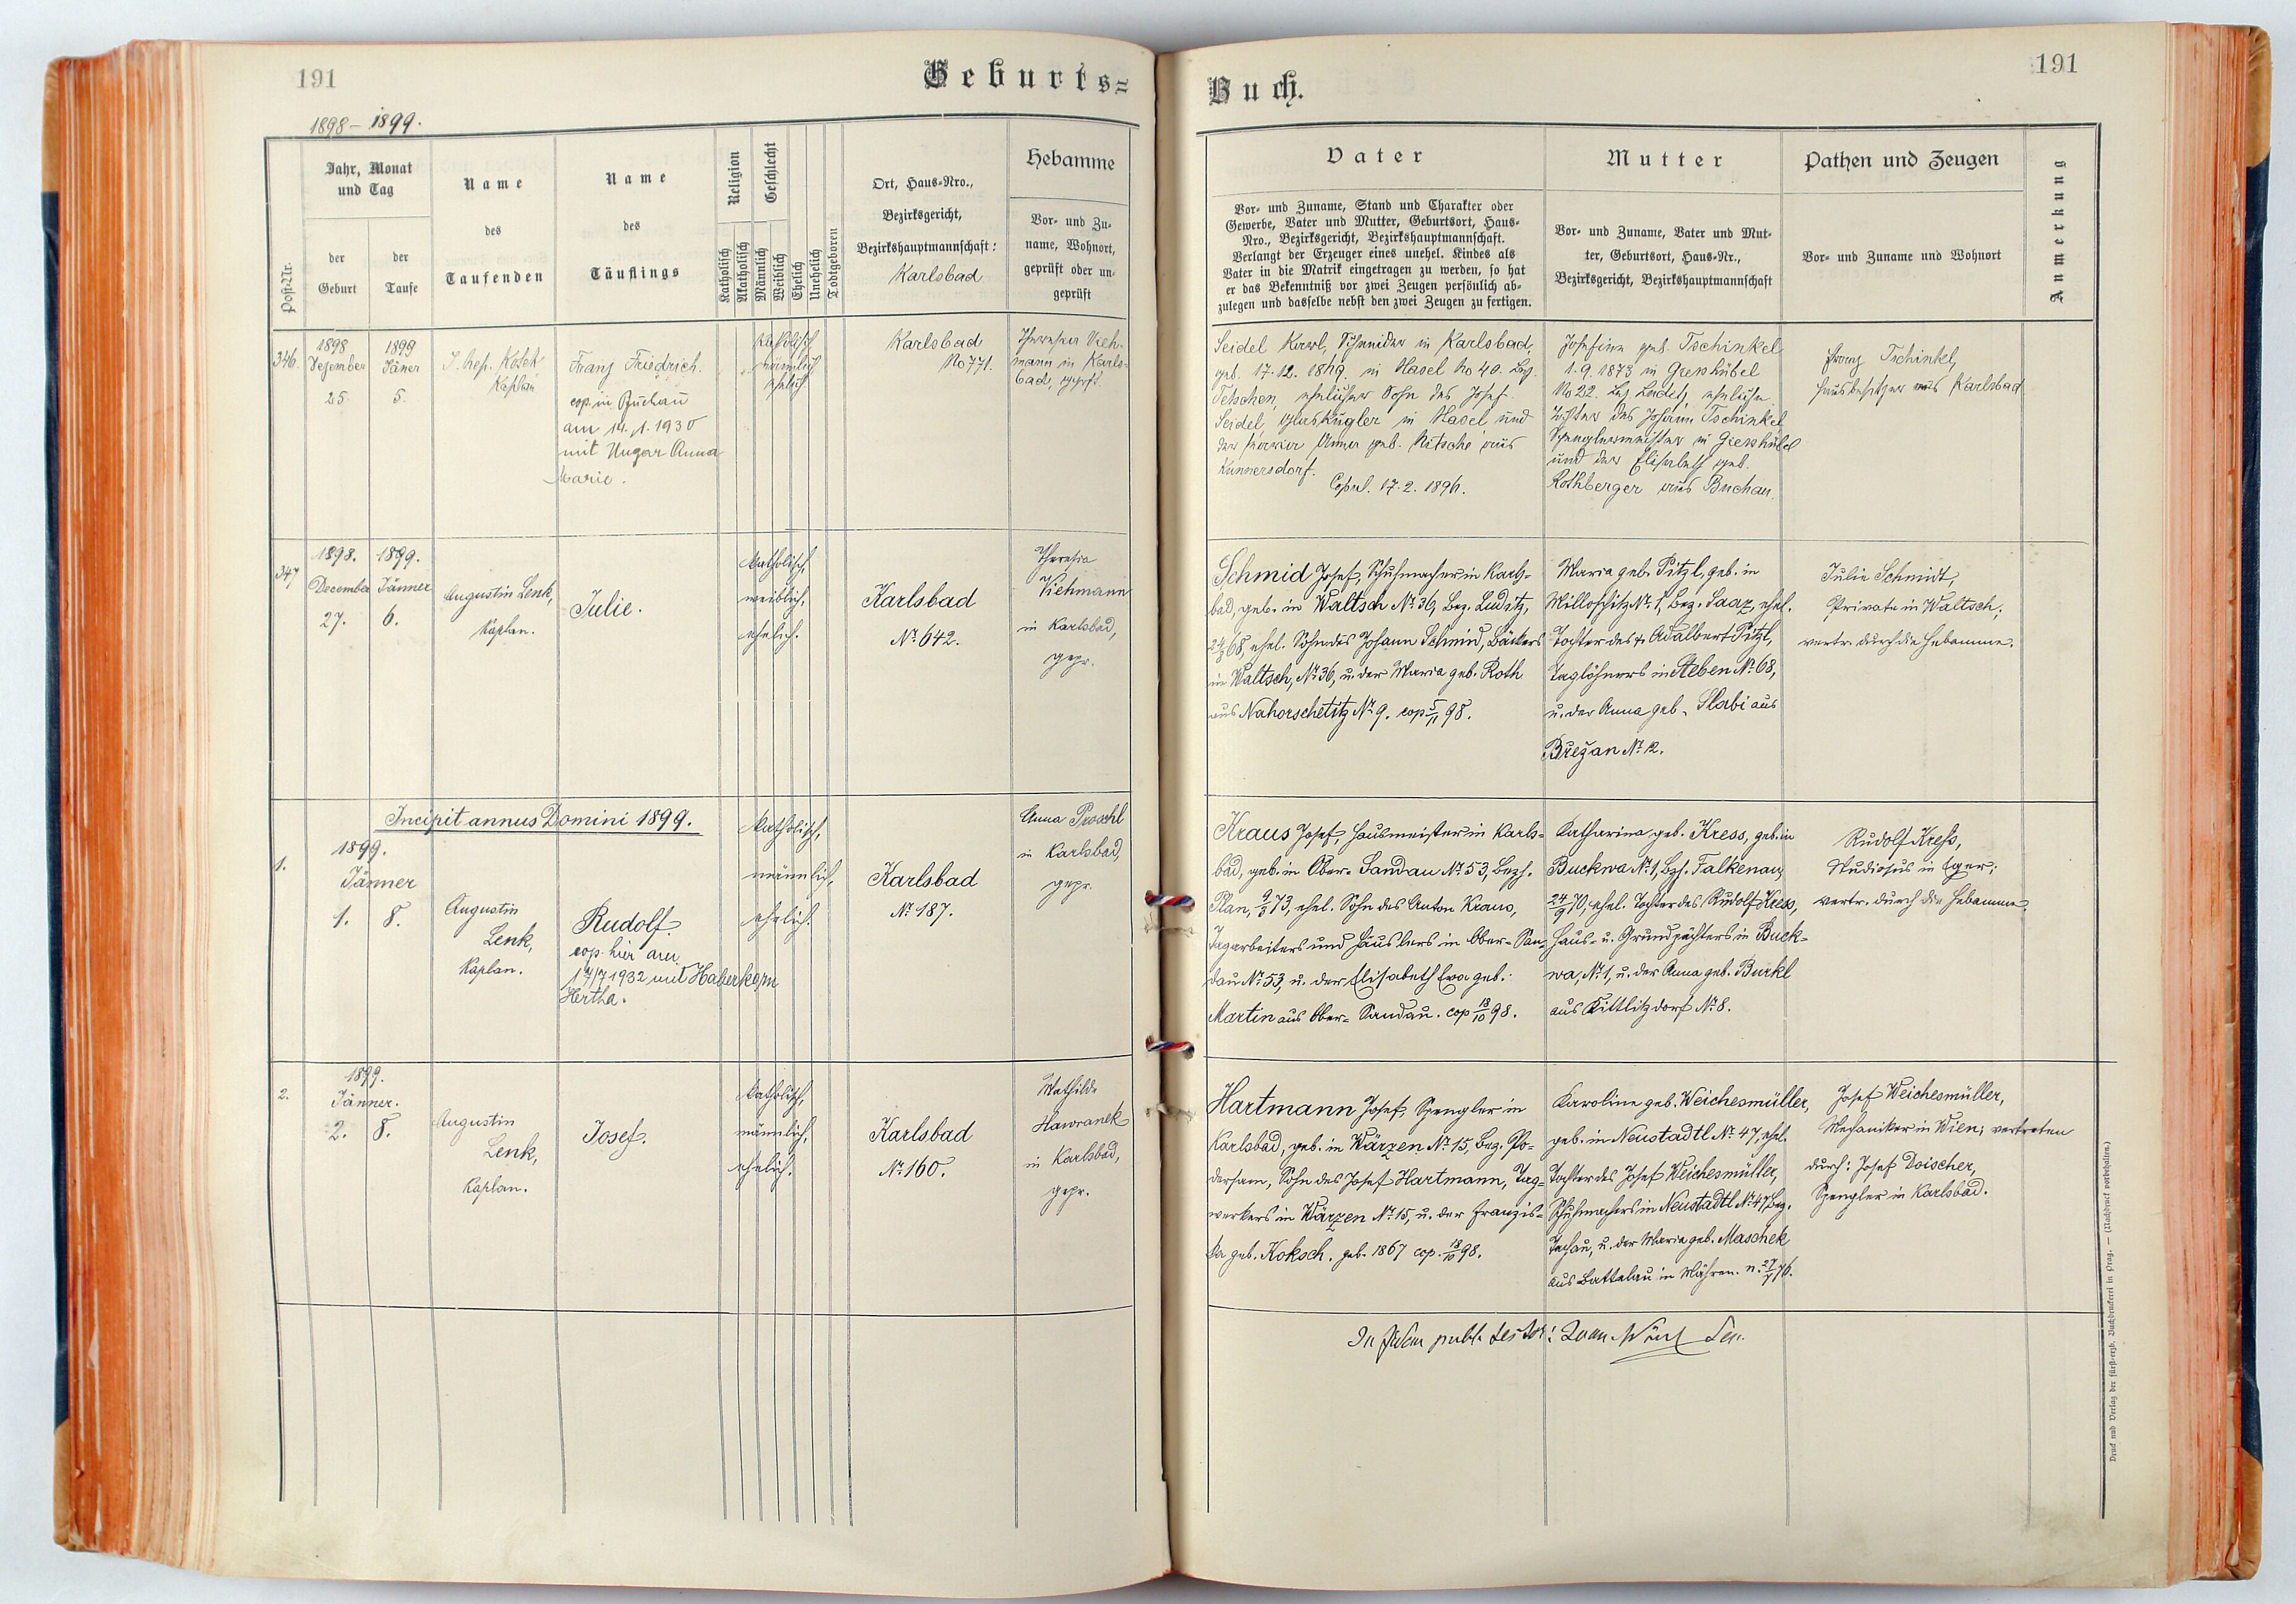 191
Geburts=
1898 – 1899.
Post-Nr.
Jahr, Monat
und Tag
der
Geburt
der
Taufe
Name
des
Taufenden
Name
des
Täuflings
Religion
Katholisch
Akatholisch
Geschlecht
Männlich
Weiblich
Ehelich
Unehelich
Todtgeboren
Ort, Haus-Nro.,
Bezirksgericht,
Bezirkshauptmannschaft:
Karlsbad
Hebamme
Vor- und Zu-
name, Wohnort,
geprüft oder un-
geprüft
346.
1898
Dezember
25.
1899
Jäner
5.
Kosek
Kaplan
Franz Friedrich.
cop. in Buchau
am 14. 1. 1930
mit Ungar Anna
Marie.
Katholisch
männlich
ehelich
Karlsbad
No 771.
Theresia Vieh-
mann in Karls-
bad, geprft.
347
1898.
December
27.
1899.
Jänner
6.
Augustin Lenk,
Kaplan.
Julie.
katholisch,
weiblich,
ehelich.
Karlsbad
No 642.
Theresia
Viehmann
in Karlsbad,
gepr.
Incipit annus Domini 1899.
1.
1899.
Jänner
1. 8.
Augustin
Lenk,
Kaplan.
Rudolf.
cop. hier am
14/7 1932 mit Haberkorn
Hertha.
katholisch,
männlich,
ehelich.
Karlsbad
No 187.
Anna Proschl
in Karlsbad,
gepr.
2.
1899.
Jänner.
2. 8.
Augustin
Lenk,
Kaplan.
Josef.
katholisch,
männlich,
ehelich.
Karlsbad
No 160.
Mathilde
Hawranek
in Karlsbad,
gepr.
Buch.
191
Vater
Vor- und Zuname, Stand und Charakter oder
Gewerbe, Vater und Mutter, Geburtsort, Haus-
Nro., Bezirksgericht, Bezirkshauptmannschaft.
Verlangt der Erzeuger eines unehel. Kindes als
Vater in die Matrik eingetragen zu werden, so hat
er das Bekenntniß vor zwei Zeugen persönlich ab-
zulegen und dasselbe nebst den zwei Zeugen zu fertigen.
Mutter
Vor- und Zuname, Vater und Mut-
ter, Geburtsort, Haus-Nr.,
Bezirksgericht, Bezirkshauptmannschaft
Pathen und Zeugen
Vor- und Zuname und Wohnort
Anmerkung
Seidel Karl, Schneider in Karlsbad,
geb. 17. 12. 1869. in Hasel No 40. Bez.
Tetschen, ehelicher Sohn des Josef
Seidel, Glaskugler in Hasel und
der Anna geb. Nitsche aus
Kunnersdorf.
Copul. 17. 2. 1896.
Josefine geb. Tschinkel
1. 9. 1873 in Gießhübel
No 22. Bez. Luditz, eheliche
Tochter des Johann Tschinkel
Spenglermeister in Giesshübel
und der Elisabeth geb.
Rothberger aus Buchau.
Franz Tschinkel,
Hausbesitzer aus Karlsbad
Schmid Josef, Schuhmacher in Karls-
bad, geb. in Waltsch No 36, Bez. Luditz,
68, ehel. Sohn des Johann Schmid, Bäckers
in Waltsch, No 36, u. der Maria geb. Roth
aus Nahorschetitz No 9. cop 5/11 98.
Maria geb. Pitzl, geb. in
Milloschitz No 1, Bez. Saaz, ehel.
Tochter des † Adalbert Pitzl,
Taglöhners in Steben No 68,
u. der Anna geb. Slabi aus
Brežan No 12.
Julie Schmidt,
Private in Waltsch;
vertr. durch die Hebamme.
Kraus Josef, Hausmeister in Karls-
bad, geb. in Ober-Sandau No 53, Bezh.
Plan, 9/2 73, ehel. Sohn des Anton Kraus,
Tagarbeiters und Häuslers in Ober-San-
dau No 53, u. der Elisabeth Eva geb.
Martin aus Ober-Sandau. cop 18/10 98.
Katharina geb. Kress, geb. in
Buckwa No 1, Bzh. Falkenau,
24/9 70, ehel. Tochter des Rudolf Kress,
Haus- u. Grundpächters in Buck-
wa, No 1, u. der Anna geb. Burkl
aus Kittlitzdorf No 8.
Rudolf Kreß,
Studiosus in Eger;
vertr. durch die Hebamme.
Hartmann Josef, Spengler in
Karlsbad, geb. in Wärzen No 15, Bez. Po-
dersam, Sohn des Josef Hartmann, Tag-
werkers in Wärzen No 15, u. der Franzis-
ka geb. Koksch. geb. 1867 cop. 18/10 98.
Karoline geb. Weichesmüller,
geb. in Neustadtl No 47, ehel.
Tochter des Josef Weichesmüller,
Schuhmachers in Neustadtl No 47 Bez.
Tachau, u. der Maria geb. Maschek
aus Battelau in Mähren. n. 27/7 76.
Josef Weichesmüller,
Mechaniker in Wien; vertreten
durch: Josef Doischer,
Spengler in Karlsbad.
In fidem publ.
Druck und Verlag der fürst-erzb. Buchdruckerei in Prag. — (Nachdruck vorbehalten.)